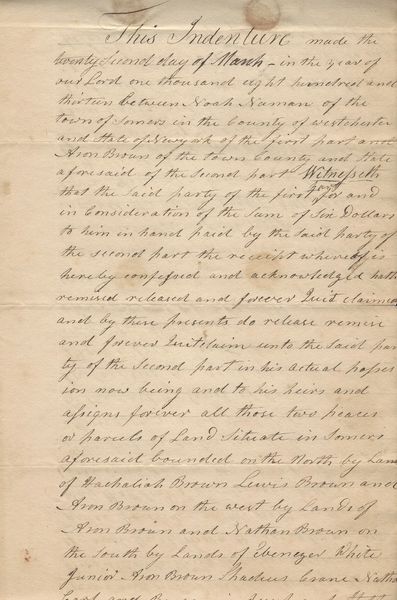 This Indenture made the
twenty Second day of March - in the year of
our Lord one thousand eight hundred and
thirteen between Noah Numan of the
town of Somers in the County of Westchester
and State of Newyork of the first part and
Aron Brown of the town County and State
aforesaid of the second part Witnesseth
that the said party of the first part for and
in Consideration of the Sum of Six Dollars
to him in hand paid by the said party of
the second part the receipt whereof is
hereby confessed and acknowledged hath
remised released and forever Quit claimed
and by these presents do release remise
and forever Quitclaim unto the said par
ty of the Second part in his actual posses
ion now being and to his heirs and
assigns forever all those two peaces
or parcels of Land Situate in Somers
aforesaid bounded on the North by Land
of Hachaliah Brown Lewis Brown and
Aron Brown on the west by Lands of
Aron Brown and Nathan Brown on
the South by Lands of Ebenezer White
Junior Aron Brown Thadeus Crane